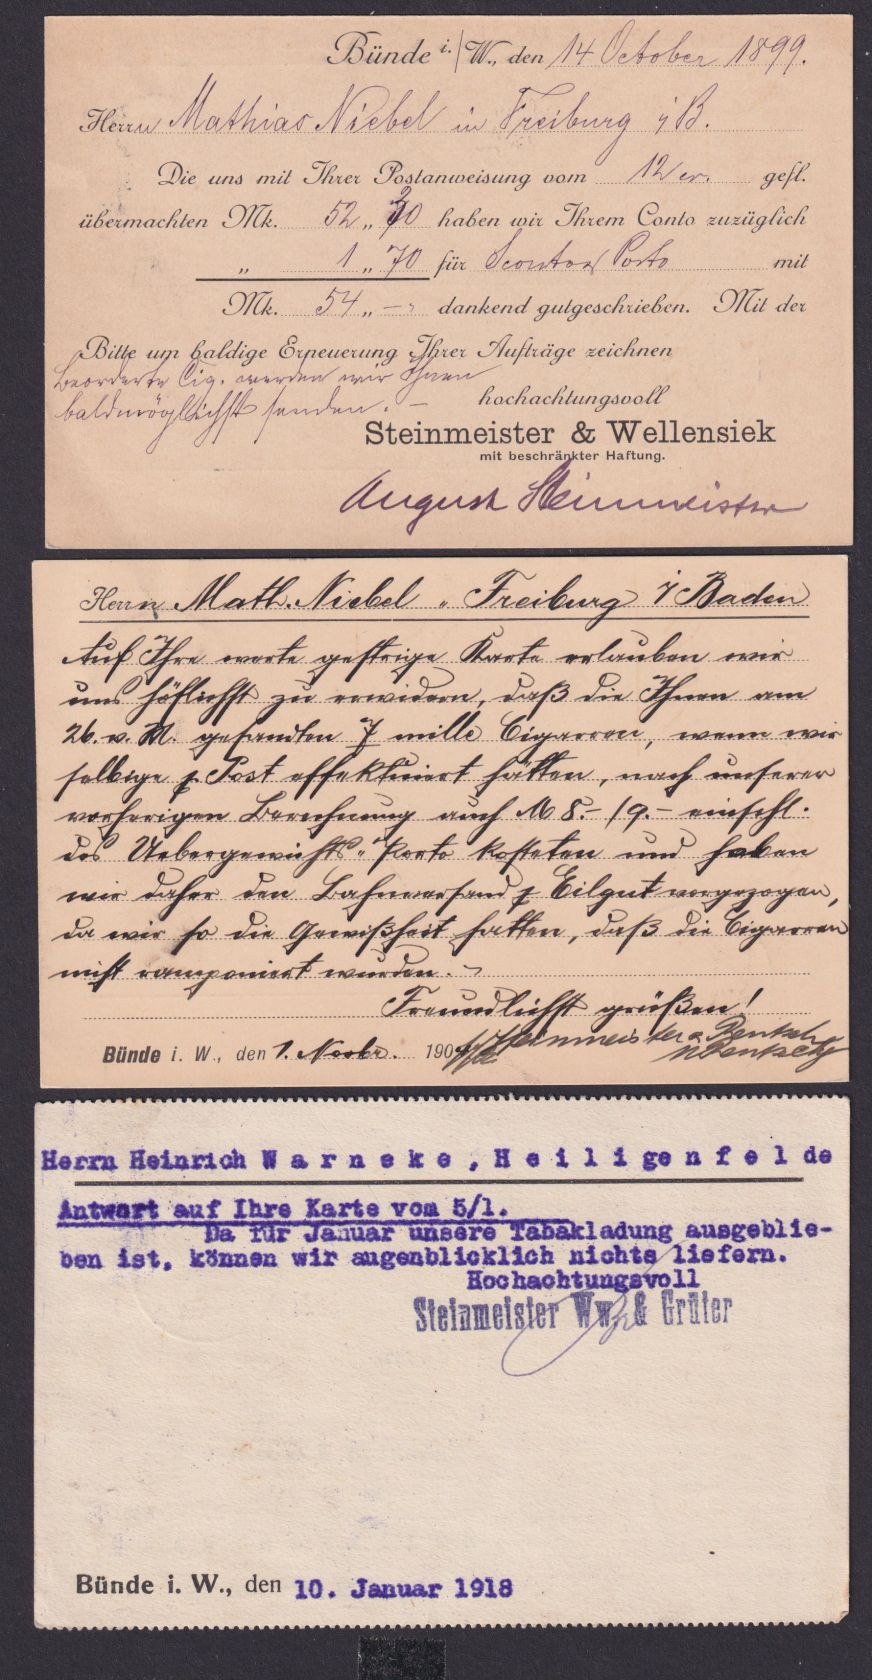 Bünde i./W., den 14 October 1899.
Herrn Mathias Niebel in Freiburg i/B.
Die uns mit Ihrer Postanweisung vom 12 cr. gefl.
übermachten Mk. 52 „ 30 haben wir Ihrem Conto zuzüglich
„ 1 „ 70 für Sconto & Porto mit
Mk. 54 „ - dankend gutgeschrieben. Mit der
Bitte um baldige Erneuerung Ihrer Aufträge zeichnen
beorderte Cig. werden wir Ihnen
hochachtungsvoll
baldmöglichst senden. –
Steinmeister & Wellensiek
mit beschränkter Haftung.
August Steinmeister
Herrn Math. Niebel „ Freiburg i/Baden
Auf Ihre werte gestrige Karte erlauben wir
uns höflichst zu erwidern, daß die Ihnen am
26. v. M. gesandten 7 mille Cigarren, wenn wir
selbige p. Post effektuiert hätten, nach unserer
vorherigen Berechnung auch M 8.-/9.- einschl.
des Uebergewichts-Porto kosteten und haben
wir daher den Bahnversand p Eilgut vorgezogen,
da wir so die Gewißheit hatten, daß die Cigarren
nicht ramponiert wurden. –
Freundlichst grüßen!
Steinmeister &
Bünde i. W., den 1. Novbr. 190
Herrn Heinrich W a r n e k e , H e i l i g e n f e l d e
Antwort auf Ihre Karte vom 5/1.
Da für Januar unsere Tabakladung ausgeblie-
ben ist, können wir augenblicklich nichts liefern.
Hochachtungsvoll
Steinmeister Ww. & Grüter
Bünde i. W., den 10. Januar 1918